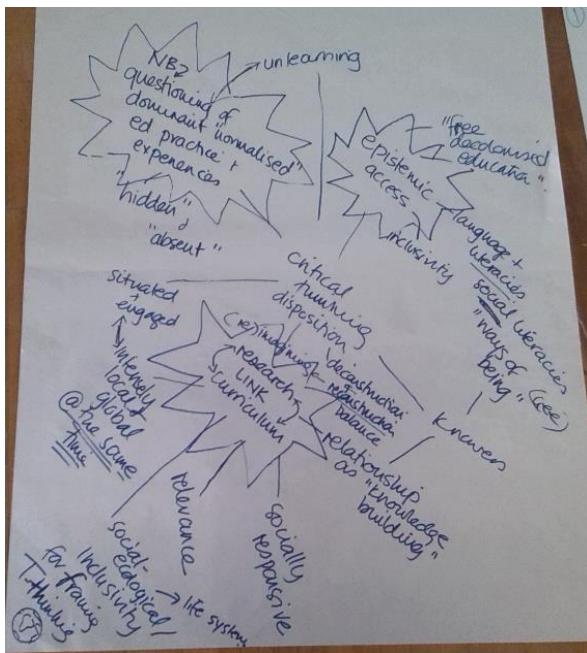 NB
unlearning
questioning of
dominant "normalised"
ed practice +
experiences
"hidden"
"absent"
epistemic
access
"free
decolonised
education"
inclusivity
language +
literacies
social literacies
"ways of
being"
critical
thinking
disposition
situated
engaged
intensely
local +
global
@ the same
time
(re)imagining
deconstruction
reconstruction
balance
research
LINK
curriculum
knowers
relationship
as "knowledge
building"
relevance
socially
responsive
social-
ecological/
inclusivity
life systems
for framing
thinking